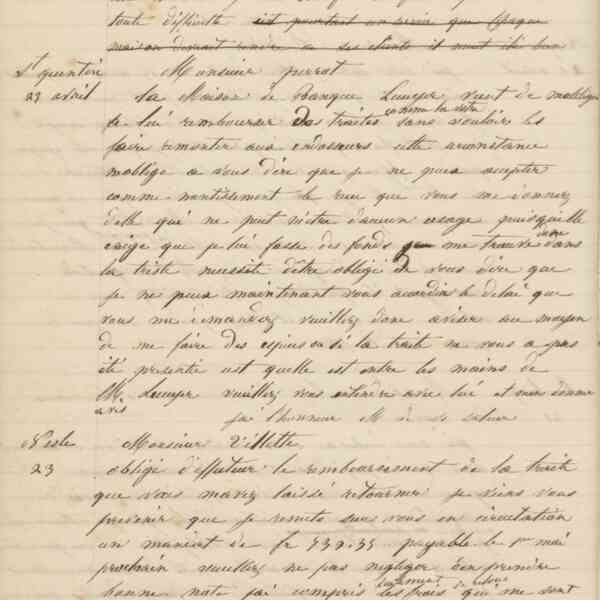 toute difficulté est pourtant un service que chaque
maison devrait rendre a ses clients il nent été bon
St quentin Monsieur perrot
23 avril La Maison de Banque Lecuyer vient de mobliger
de lui rembourser des traites comme la votre sans vouloir les
faire remonter aux endosseurs cette circonstance
moblige a vous dire que je ne puis accepter
comme nantissement le que vous me donnez
delle qui ne peut mètre daucun usage puisquelle
exige que je lui fasse des fonds me trouve donc dans
la triste necessité dêtre obligé de vous dire que
je ne peux maintenant vous accorder le délai que
vous me demandez veuillez donc aviser au moyen
de me faire des especes ou si la traite ne vous a pas
été presentée est quelle est entre les mains de
M. Lecuyer veuillez vous entendre avec lui et men donner
avis jai l'honneur M de de saluer
Nesle Monsieur Villette
23 obligé d'effectuer le remboursement de la traite
que vous mavez laissé retourner je viens vous
prevenir que je remets sur vous en circulation
un mandat de fr 539.55 payable le 1er mai
prochain veuillez ne pas negliger den prendre
bonne note jai compris les frais qui me sont